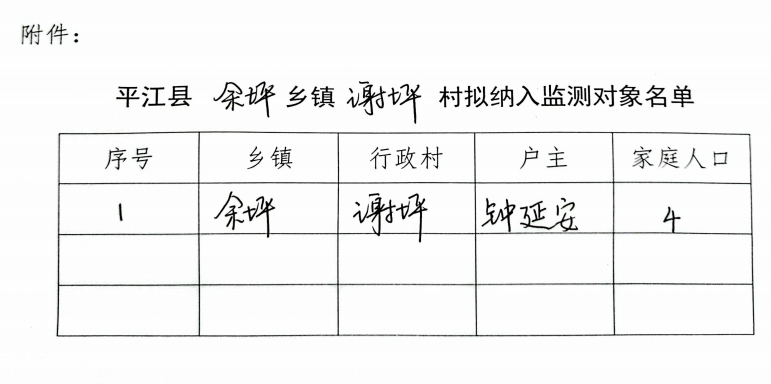 附件：
平江县 余坪 乡镇 谢坪 村拟纳入监测对象名单
序号 乡镇 行政村 户主 家庭人口
1 余坪 谢坪 钟延安 4